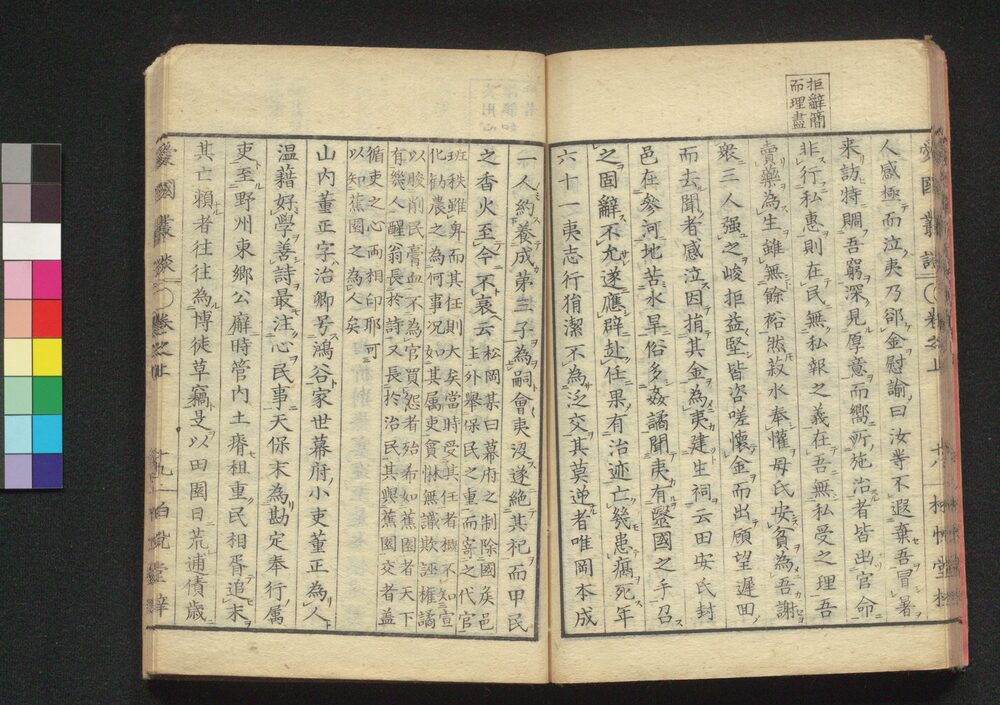 拒辭簡
而理盡
人感極而泣夷乃郤金慰諭曰汝等不遐棄吾冒暑
来訪特賙吾窮深見厚意而嚮所施治者皆出官命
非行私惠則在民無私報之義在吾無私受之理吾
賣藥為生雖無餘裕然菽水奉懽母氏安貧為吾謝
衆三人强之峻拒益堅皆咨嗟懷金而出願望遲回
而去聞者感泣因捐其金為夷建生祠云田安氏封
邑在參河地苦水旱俗多姦譎聞夷有毉國之手召
之固辭不允遂應辟赴任果有治迹亡幾患癘死年
六十一夷志行狷潔不為泛交其莫逆者唯岡本成
一人約養成弟三子為嗣會夷沒遂絶其祀而甲民
之香火至今不衰云
松岡某曰幕府之制除國矦邑
主外舉保民之重而寄之代官
班秩雖卑而其任則大矣當時受其任者概不知宣
化勧農之為何事况如其属吏貪惏無識欺誣權譎
以朘削民膏血不為官買怨者殆希如蕉園者天下
有幾人醒翁長於詩又長於治民其與蕉園交者盖
循吏之心两相印耶可
以知蕉園之為人矣
山内董正字治卿号鴻谷家世幕府小吏董正為人
温藉好學善詩最注心民事天保末為勘定奉行属
吏至野州東郷公廨時管内土瘠租重民相胥追末
其亡頼者往往為博徒草竊是以田園日荒逋債歳